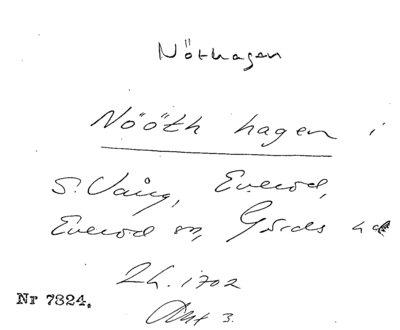 Nöthagen
Nööth hagen i
S. Vång, Everöd,
Everöd sn, Gärds hd
Lh. 1702
Akt 3.
Nr 7324.